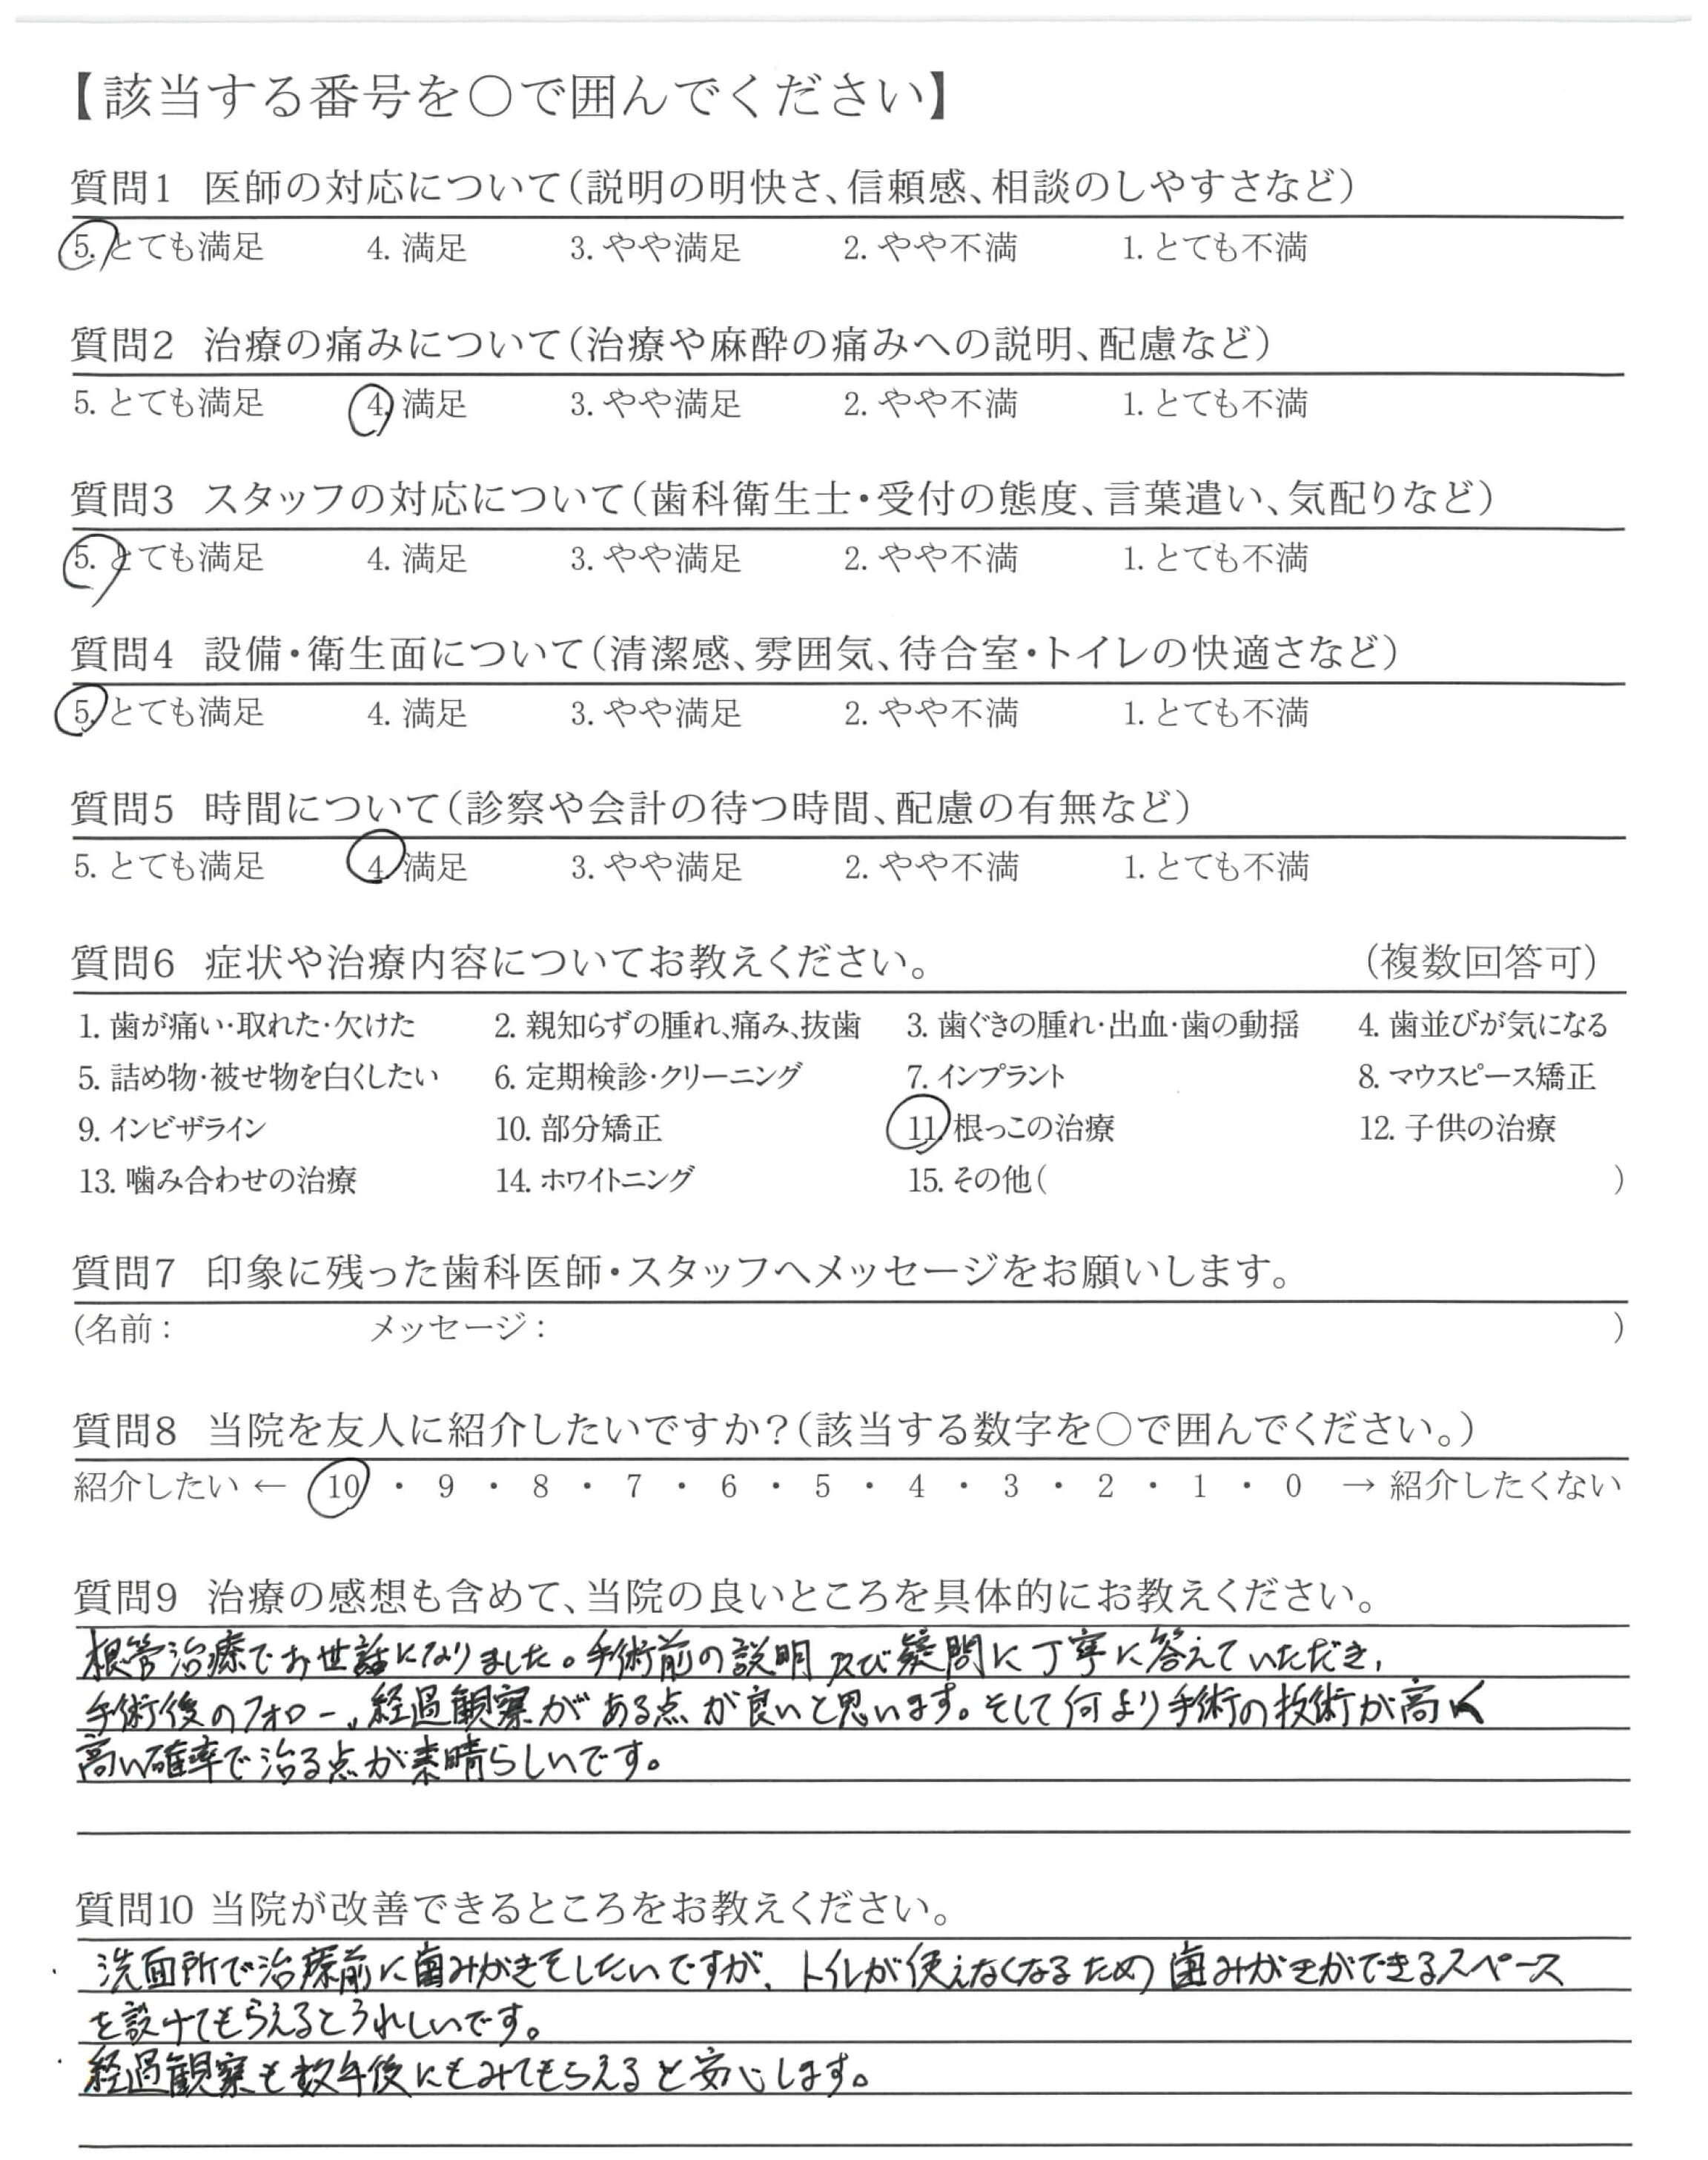 【該当する番号を○で囲んでください】
質問1 医師の対応について(説明の明快さ、信頼感、相談のしやすさなど)
5. とても満足 4. 満足 3. やや満足 2. やや不満 1. とても不満
質問2 治療の痛みについて(治療や麻酔の痛みへの説明、配慮など)
5. とても満足 4. 満足 3. やや満足 2. やや不満 1. とても不満
質問3 スタッフの対応について(歯科衛生士・受付の態度、言葉遣い、気配りなど)
5. とても満足 4. 満足 3. やや満足 2. やや不満 1. とても不満
質問4 設備・衛生面について(清潔感、雰囲気、待合室・トイレの快適さなど)
5. とても満足 4. 満足 3. やや満足 2. やや不満 1. とても不満
質問5 時間について(診察や会計の待つ時間、配慮の有無など)
5. とても満足 4. 満足 3. やや満足 2. やや不満 1. とても不満
質問6 症状や治療内容についてお教えください。 (複数回答可)
1. 歯が痛い・取れた・欠けた 2. 親知らずの腫れ、痛み、抜歯 3. 歯ぐきの腫れ・出血・歯の動揺 4. 歯並びが気になる
5. 詰め物・被せ物を白くしたい 6. 定期検診・クリーニング 7. インプラント 8. マウスピース矯正
9. インビザライン 10. 部分矯正 11. 根っこの治療 12. 子供の治療
13. 噛み合わせの治療 14. ホワイトニング 15. その他( )
質問7 印象に残った歯科医師・スタッフへメッセージをお願いします。
(名前: メッセージ: )
質問8 当院を友人に紹介したいですか?(該当する数字を○で囲んでください。)
紹介したい ← 10 ・ 9 ・ 8 ・ 7 ・ 6 ・ 5 ・ 4 ・ 3 ・ 2 ・ 1 ・ 0 → 紹介したくない
質問9 治療の感想も含めて、当院の良いところを具体的にお教えください。
根管治療でお世話になりました。手術前の説明及び疑問に丁寧に答えていただき、
手術後のフォロー、経過観察がある点が良いと思います。そして何より手術の技術が高く
高い確率で治る点が素晴らしいです。
質問10 当院が改善できるところをお教えください。
・洗面所で治療前に歯みがきをしたいですが、トイレが使えなくなるため歯みがきができるスペース
を設けてもらえるとうれしいです。
・経過観察も数年後にもみてもらえると安心します。